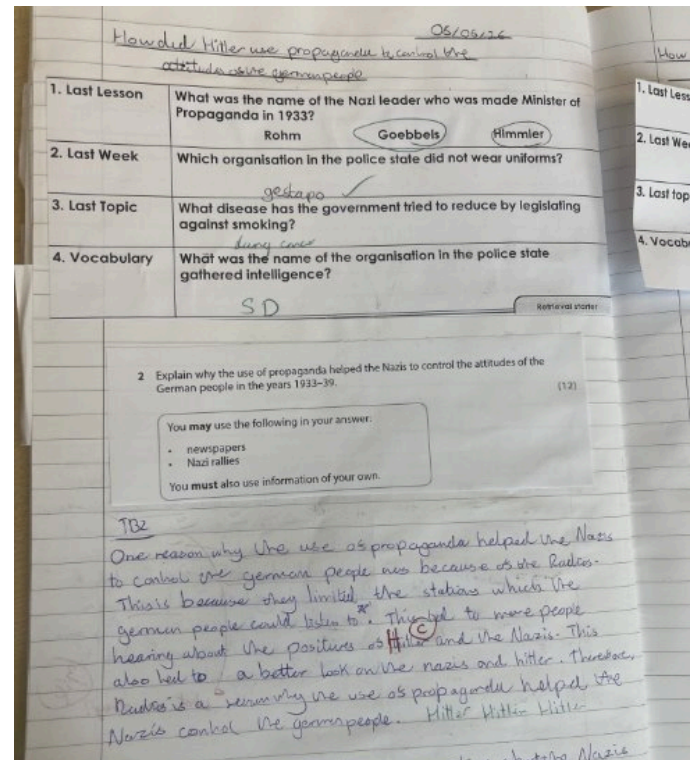 05/05/26
How did Hitler use propaganda to control the
attitudes of the german people
1. Last Lesson
What was the name of the Nazi leader who was made Minister of
Propaganda in 1933?
Rohm Goebbels Himmler
2. Last Week
Which organisation in the police state did not wear uniforms?
gestapo ✓
3. Last Topic
What disease has the government tried to reduce by legislating
against smoking?
lung
4. Vocabulary
What was the name of the organisation in the police state
gathered intelligence?
SD
Retrieval starter
2 Explain why the use of propaganda helped the Nazis to control the attitudes of the
German people in the years 1933–39.
(12)
You may use the following in your answer:
• newspapers
• Nazi rallies
You must also use information of your own.
One reason why the use of propaganda helped the Nazis
to control the german people was because of the Radios.
This is because they limited the stations which the
german people could listen to*. This led to more people
hearing about the positives of Hitler and the Nazis. This
also led to a better look on the nazis and hitler. Therefore,
Radios is a reason why the use of propaganda helped the
Nazis control the german people. Hitler Hitler Hitler
the Nazis
How
1. Last Less
2. Last We
3. Last top
4. Vocab